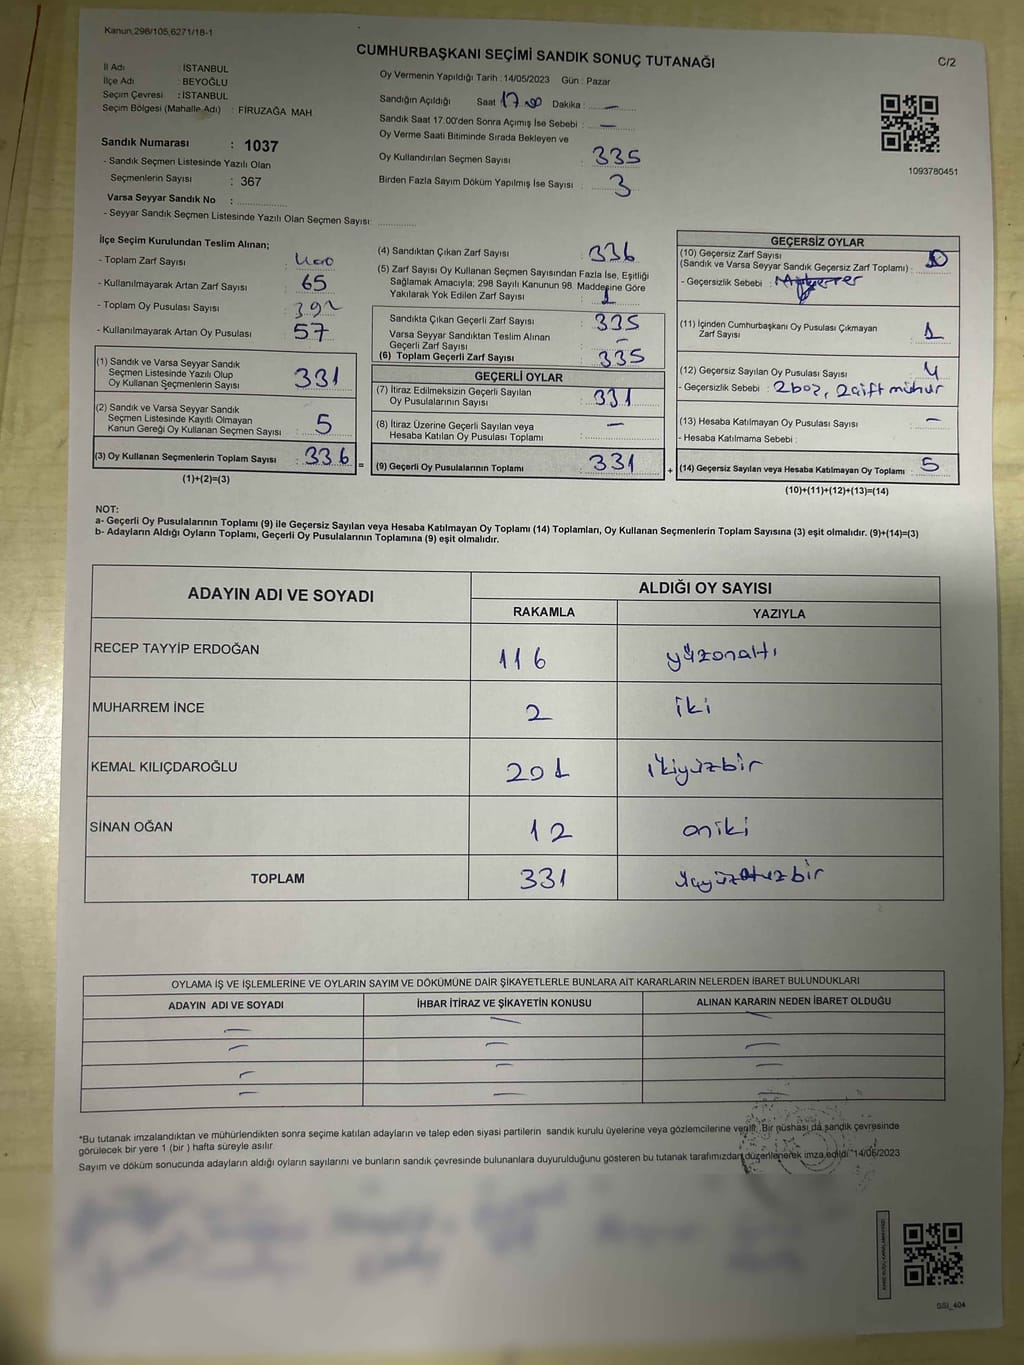 Kanun,298/105,6271/18-1
CUMHURBAŞKANI SEÇİMİ SANDIK SONUÇ TUTANAĞI
C/2
İl Adı : İSTANBUL
İlçe Adı : BEYOĞLU
Seçim Çevresi : İSTANBUL
Seçim Bölgesi (Mahalle Adı) : FİRUZAĞA MAH
Sandık Numarası : 1037
- Sandık Seçmen Listesinde Yazılı Olan
Seçmenlerin Sayısı : 367
Varsa Seyyar Sandık No :
- Seyyar Sandık Seçmen Listesinde Yazılı Olan Seçmen Sayısı:
Oy Vermenin Yapıldığı Tarih : 14/05/2023 Gün : Pazar
Sandığın Açıldığı Saat 17.00 Dakika : —
Sandık Saat 17:00'den Sonra Açımış İse Sebebi : —
Oy Verme Saati Bitiminde Sırada Bekleyen ve
Oy Kullandırılan Seçmen Sayısı : 335
Birden Fazla Sayım Döküm Yapılmış İse Sayısı : 3
1093780451
İlçe Seçim Kurulundan Teslim Alınan;
- Toplam Zarf Sayısı : 400
- Kullanılmayarak Artan Zarf Sayısı : 65
- Toplam Oy Pusulası Sayısı : 392
- Kullanılmayarak Artan Oy Pusulası : 57
(1) Sandık ve Varsa Seyyar Sandık
Seçmen Listesinde Yazılı Olup
Oy Kullanan Seçmenlerin Sayısı : 331
(2) Sandık ve Varsa Seyyar Sandık
Seçmen Listesinde Kayıtlı Olmayan
Kanun Gereği Oy Kullanan Seçmen Sayısı : 5
(3) Oy Kullanan Seçmenlerin Toplam Sayısı : 336 =
(1)+(2)=(3)
(4) Sandıktan Çıkan Zarf Sayısı : 336
(5) Zarf Sayısı Oy Kullanan Seçmen Sayısından Fazla İse, Eşitliği
Sağlamak Amacıyla; 298 Sayılı Kanunun 98. Maddesine Göre
Yakılarak Yok Edilen Zarf Sayısı : 1
Sandıkta Çıkan Geçerli Zarf Sayısı : 335
Varsa Seyyar Sandıktan Teslim Alınan
Geçerli Zarf Sayısı : —
(6) Toplam Geçerli Zarf Sayısı : 335
GEÇERLİ OYLAR
(7) İtiraz Edilmeksizin Geçerli Sayılan
Oy Pusulalarının Sayısı : 331
(8) İtiraz Üzerine Geçerli Sayılan veya
Hesaba Katılan Oy Pusulası Toplamı : —
(9) Geçerli Oy Pusulalarının Toplamı : 331 +
GEÇERSİZ OYLAR
(10) Geçersiz Zarf Sayısı
(Sandık ve Varsa Seyyar Sandık Geçersiz Zarf Toplamı) :
- Geçersizlik Sebebi :
(11) İçinden Cumhurbaşkanı Oy Pusulası Çıkmayan
Zarf Sayısı : 1
(12) Geçersiz Sayılan Oy Pusulası Sayısı : 4
- Geçersizlik Sebebi : 2 boş, 2 çift mühür
(13) Hesaba Katılmayan Oy Pusulası Sayısı : —
- Hesaba Katılmama Sebebi :
(14) Geçersiz Sayılan veya Hesaba Katılmayan Oy Toplamı : 5
(10)+(11)+(12)+(13)=(14)
NOT:
a- Geçerli Oy Pusulalarının Toplamı (9) ile Geçersiz Sayılan veya Hesaba Katılmayan Oy Toplamı (14) Toplamları, Oy Kullanan Seçmenlerin Toplam Sayısına (3) eşit olmalıdır. (9)+(14)=(3)
b- Adayların Aldığı Oyların Toplamı, Geçerli Oy Pusulalarının Toplamına (9) eşit olmalıdır.
ADAYIN ADI VE SOYADI ALDIĞI OY SAYISI
RAKAMLA YAZIYLA
RECEP TAYYİP ERDOĞAN 116 yüzonaltı
MUHARREM İNCE 2 iki
KEMAL KILIÇDAROĞLU 201 ikiyüzbir
SİNAN OĞAN 12 oniki
TOPLAM 331 üçyüzotuzbir
OYLAMA İŞ VE İŞLEMLERİNE VE OYLARIN SAYIM VE DÖKÜMÜNE DAİR ŞİKAYETLERLE BUNLARA AİT KARARLARIN NELERDEN İBARET BULUNDUKLARI
ADAYIN ADI VE SOYADI İHBAR İTİRAZ VE ŞİKAYETİN KONUSU ALINAN KARARIN NEDEN İBARET OLDUĞU
— — —
— — —
— — —
— — —
*Bu tutanak imzalandıktan ve mühürlendikten sonra seçime katılan adayların ve talep eden siyasi partilerin sandık kurulu üyelerine veya gözlemcilerine verilir. Bir nüshası da sandık çevresinde
görülecek bir yere 1 (bir ) hafta süreyle asılır.
Sayım ve döküm sonucunda adayların aldığı oyların sayılarını ve bunların sandık çevresinde bulunanlara duyurulduğunu gösteren bu tutanak tarafımızdan düzenlenerek imza edildi. 14/05/2023
GSI_404